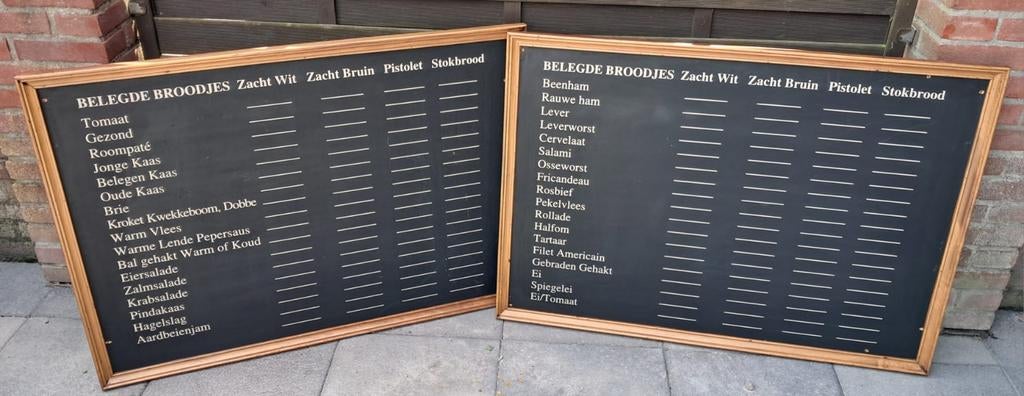 BELEGDE BROODJES Zacht Wit Zacht Bruin Pistolet Stokbrood
Tomaat
Gezond
Roompaté
Jonge Kaas
Belegen Kaas
Oude Kaas
Brie
Kroket Kwekkeboom, Dobbe
Warm Vlees
Warme Lende Pepersaus
Bal gehakt Warm of Koud
Eiersalade
Zalmsalade
Krabsalade
Pindakaas
Hagelslag
Aardbeienjam
BELEGDE BROODJES Zacht Wit Zacht Bruin Pistolet Stokbrood
Beenham
Rauwe ham
Lever
Leverworst
Cervelaat
Salami
Osseworst
Fricandeau
Rosbief
Pekelvlees
Rollade
Halfom
Tartaar
Filet Americain
Gebraden Gehakt
Ei
Spiegelei
Ei/Tomaat